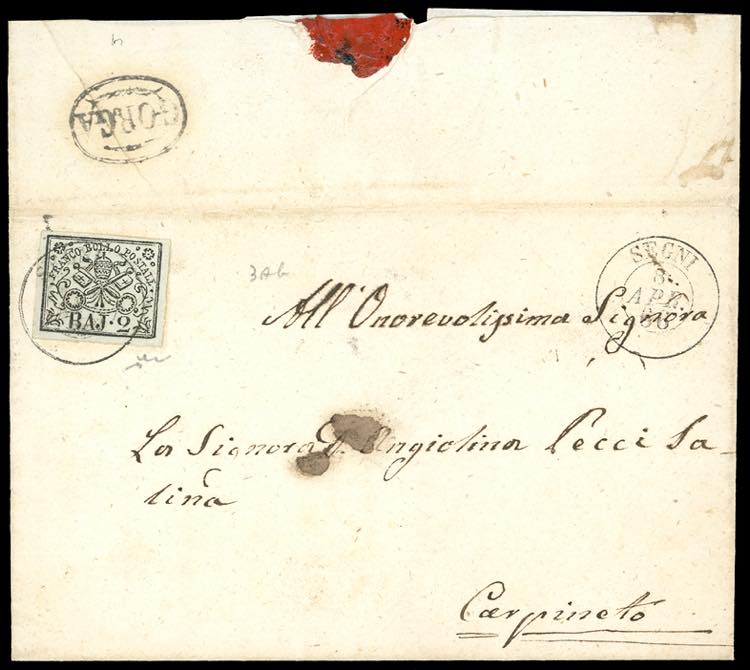 GORGA
FRANCO BOLLO POSTALE
BAJ. 2
3Ab
SEGNI
8
APR.
All' Onorevolissima Signora
La Signora Angiolina Pecci Sa-
lina
Carpineto